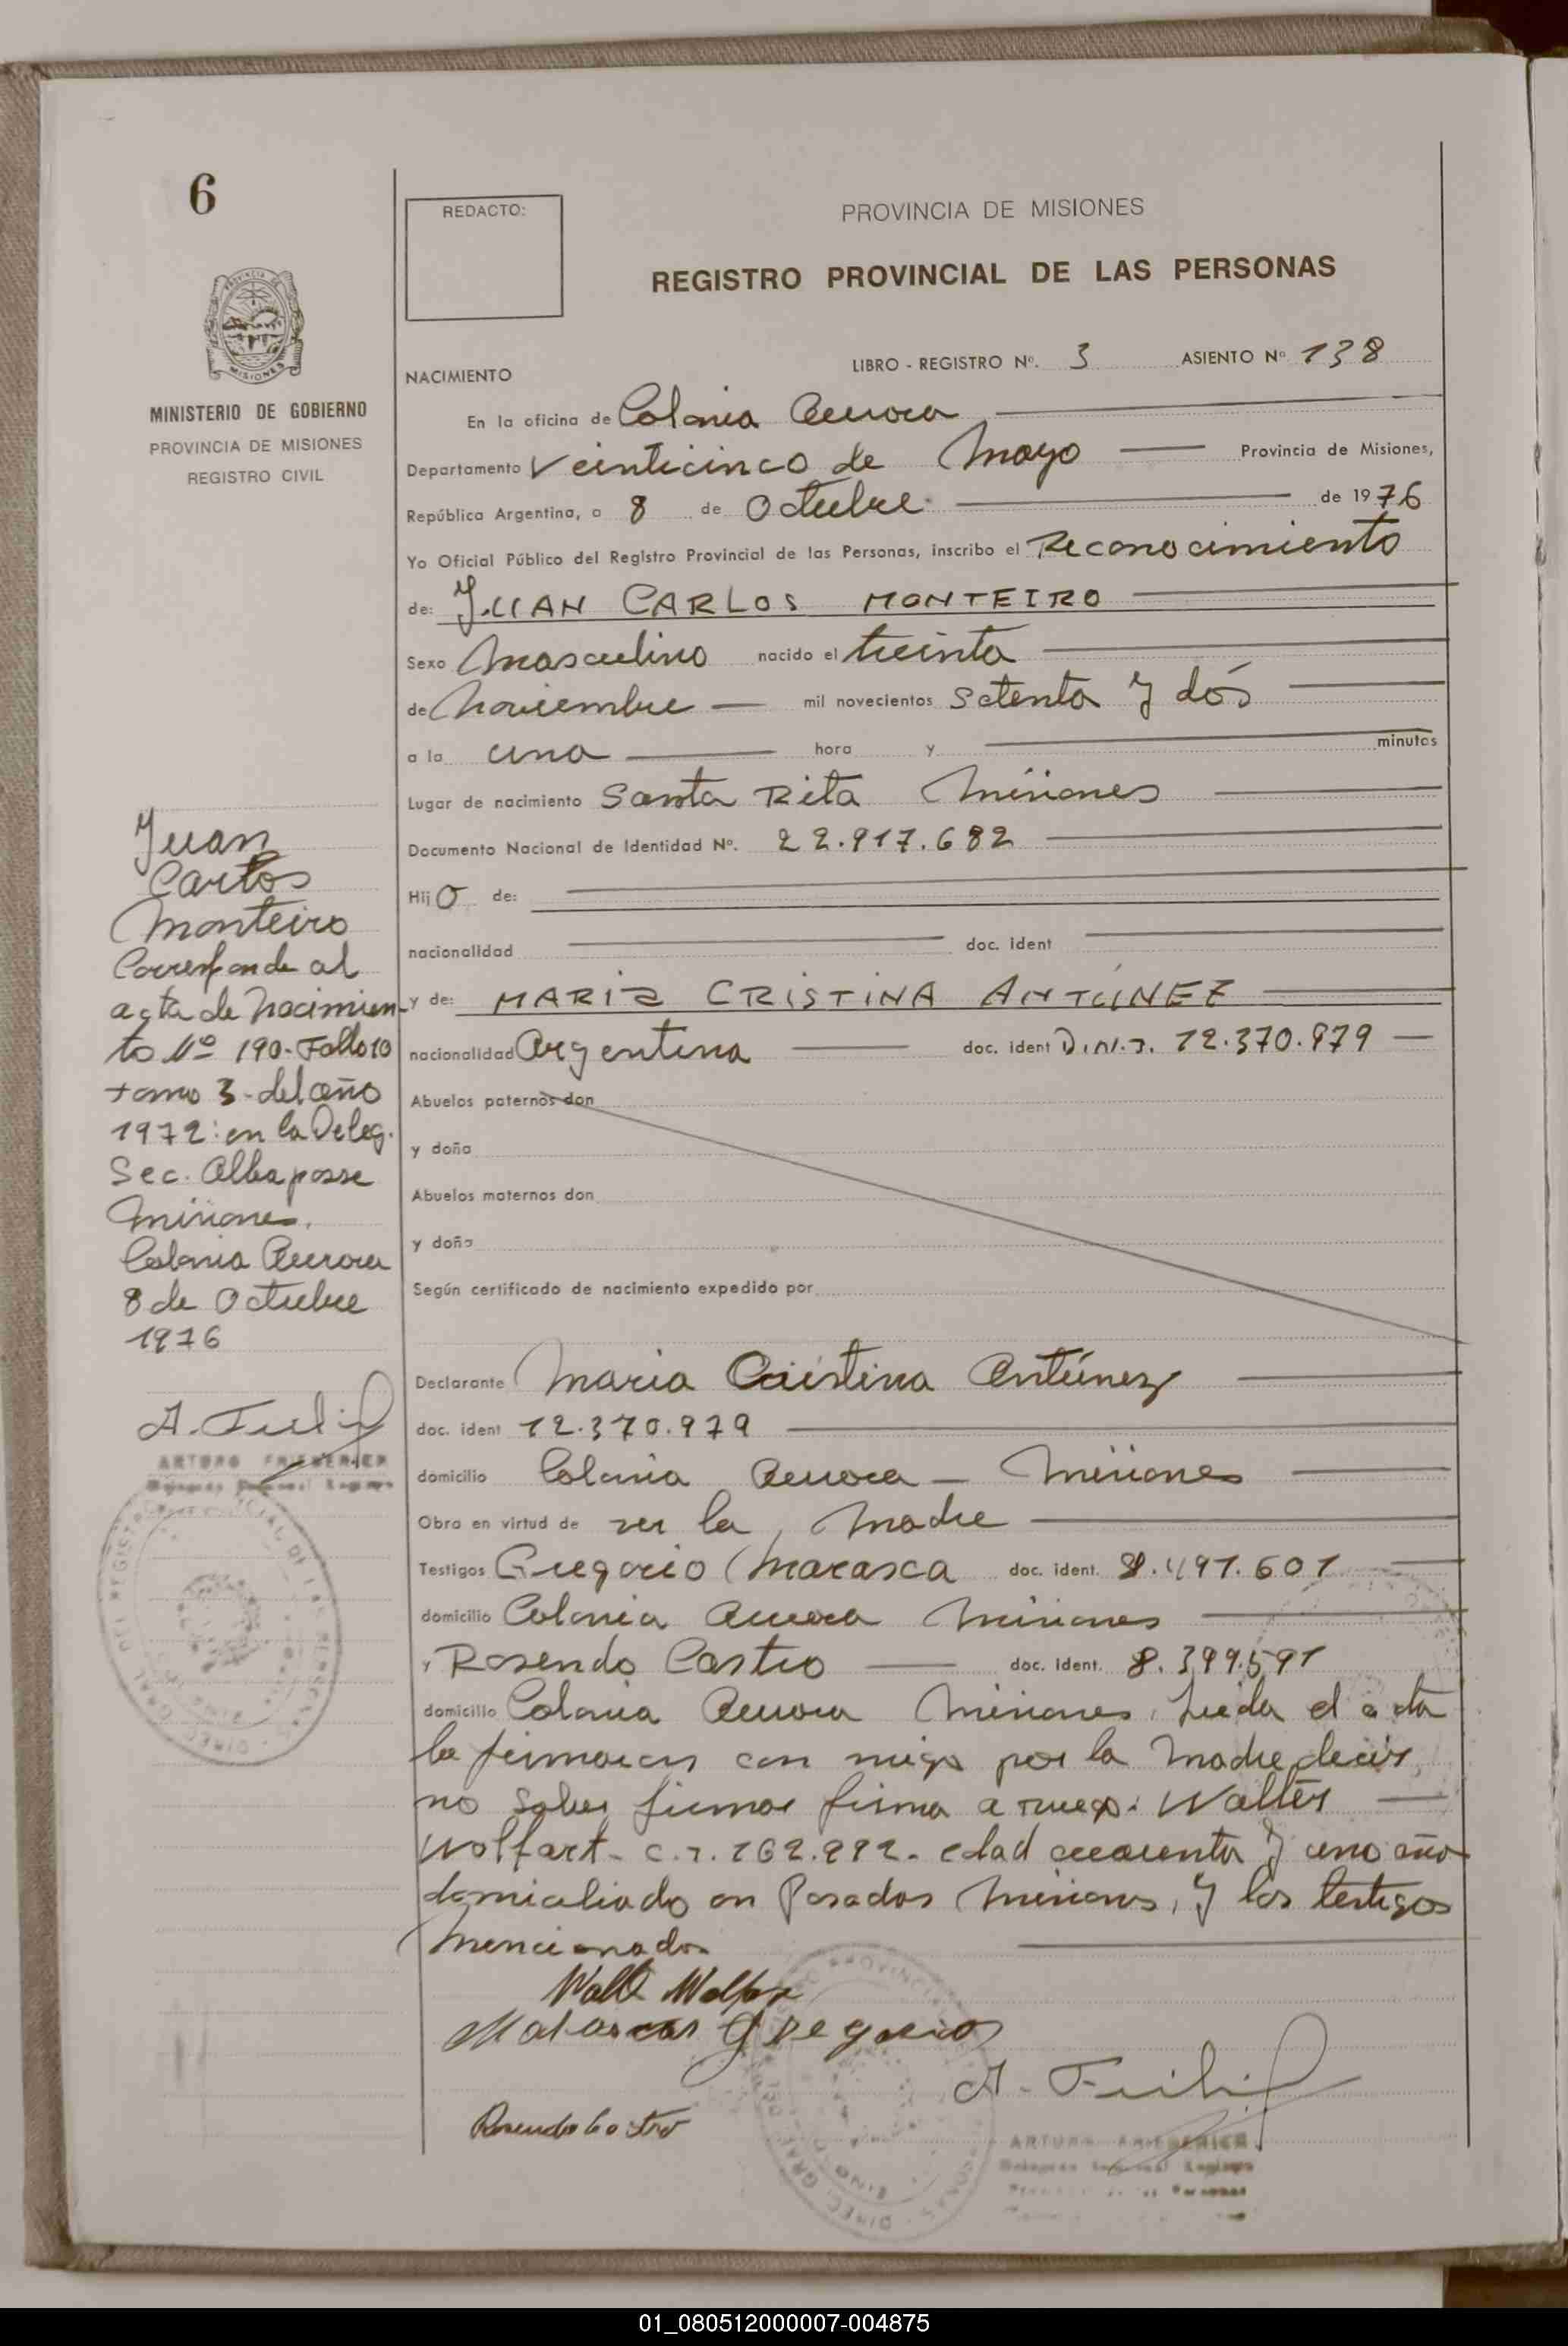 6
REDACTO:
PROVINCIA DE MISIONES
REGISTRO PROVINCIAL DE LAS PERSONAS
MINISTERIO DE GOBIERNO
PROVINCIA DE MISIONES
REGISTRO CIVIL
LIBRO - REGISTRO Nº. 3 ASIENTO Nº 138
NACIMIENTO
En la oficina de Colonia Aurora
Departamento Veinticinco de Mayo Provincia de Misiones,
República Argentina, a 8 de Octubre de 1976
Yo Oficial Público del Registro Provincial de las Personas, inscribo el Reconocimiento
de: JUAN CARLOS MONTEIRO
Sexo Masculino nacido el treinta
de Noviembre mil novecientos Setenta y dós
a la una hora y minutos
Lugar de nacimiento Santa Rita Misiones
Documento Nacional de Identidad Nº. 22.917.682
Hijo de:
nacionalidad doc. ident
y de: MARIA CRISTINA ANTÚNEZ
nacionalidad Argentina doc. ident D.N.I. 12.370.979
Abuelos paternos don
y doña
Abuelos maternos don
y doña
Según certificado de nacimiento expedido por
Declarante Maria Cristina Antúnez
doc. ident 12.370.979
domicilio Colonia Aurora - Misiones
Obra en virtud de ser la Madre
Testigos Gregorio Marasca doc. ident. 8.491.601
domicilio Colonia Aurora Misiones
y Rosendo Castro doc. ident. 8.399.591
domicilio Colonia Aurora Misiones, Leida el acta
la firmaran con migo por la Madre decir
no saber firmar firma a ruego: Walter
Wolfart - C.I. 162.992. edad cuarenta y uno año
domiciliado en Posadas Misiones, y los testigos
Mencionados
Juan
Carlos
Monteiro
Corresponde al
acta de Nacimien-
to Nº 190-Folio 10
tomo 3-del año
1972: en la Deleg.
Sec. Alba posse
Misiones.
Colonia Aurora
8 de Octubre
1976
ARTURO
Marascas Gregorio
Rosendo Castro
ARTURO
01_080512000007-004875